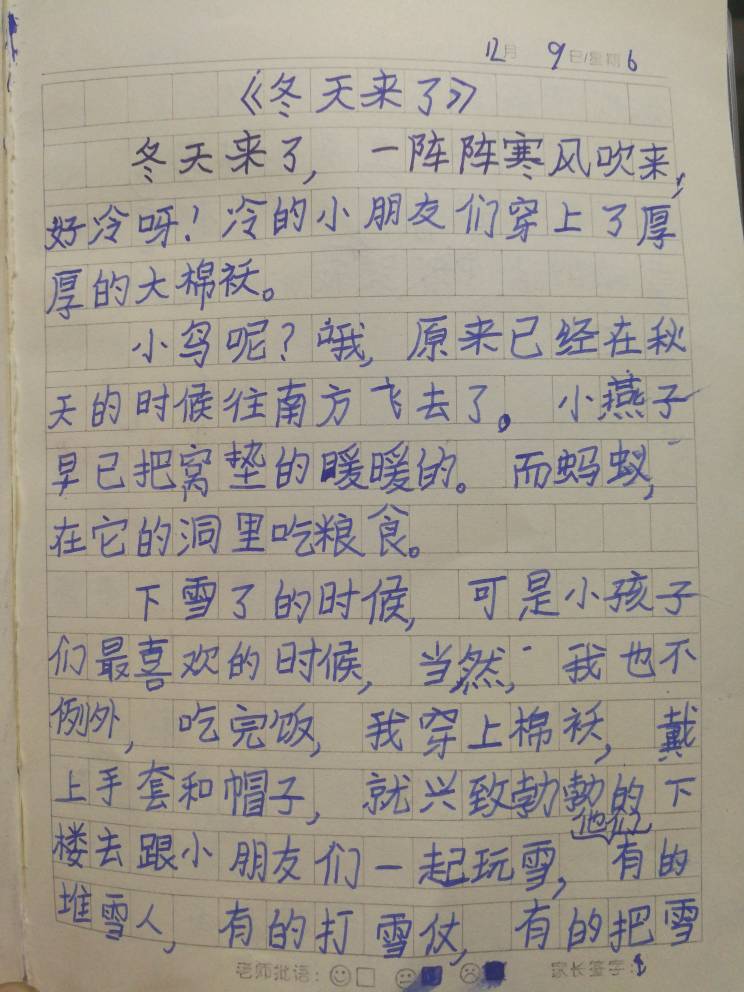 12月 9日/星期6
《冬天来了》
冬天来了，一阵阵寒风吹来，
好冷呀！冷的小朋友们穿上了厚
厚的大棉袄。
小鸟呢？哦，原来已经在秋
天的时候往南方飞去了。小燕子
早已把窝垫的暖暖的。而蚂蚁，
在它的洞里吃粮食。
下雪了的时候，可是小孩子
们最喜欢的时候，当然，我也不
例外，吃完饭，我穿上棉袄，戴
上手套和帽子，就兴致勃勃的下
他们
楼去跟小朋友们一起玩雪，有的
堆雪人，有的打雪仗，有的把雪
老师批语：家长签字：